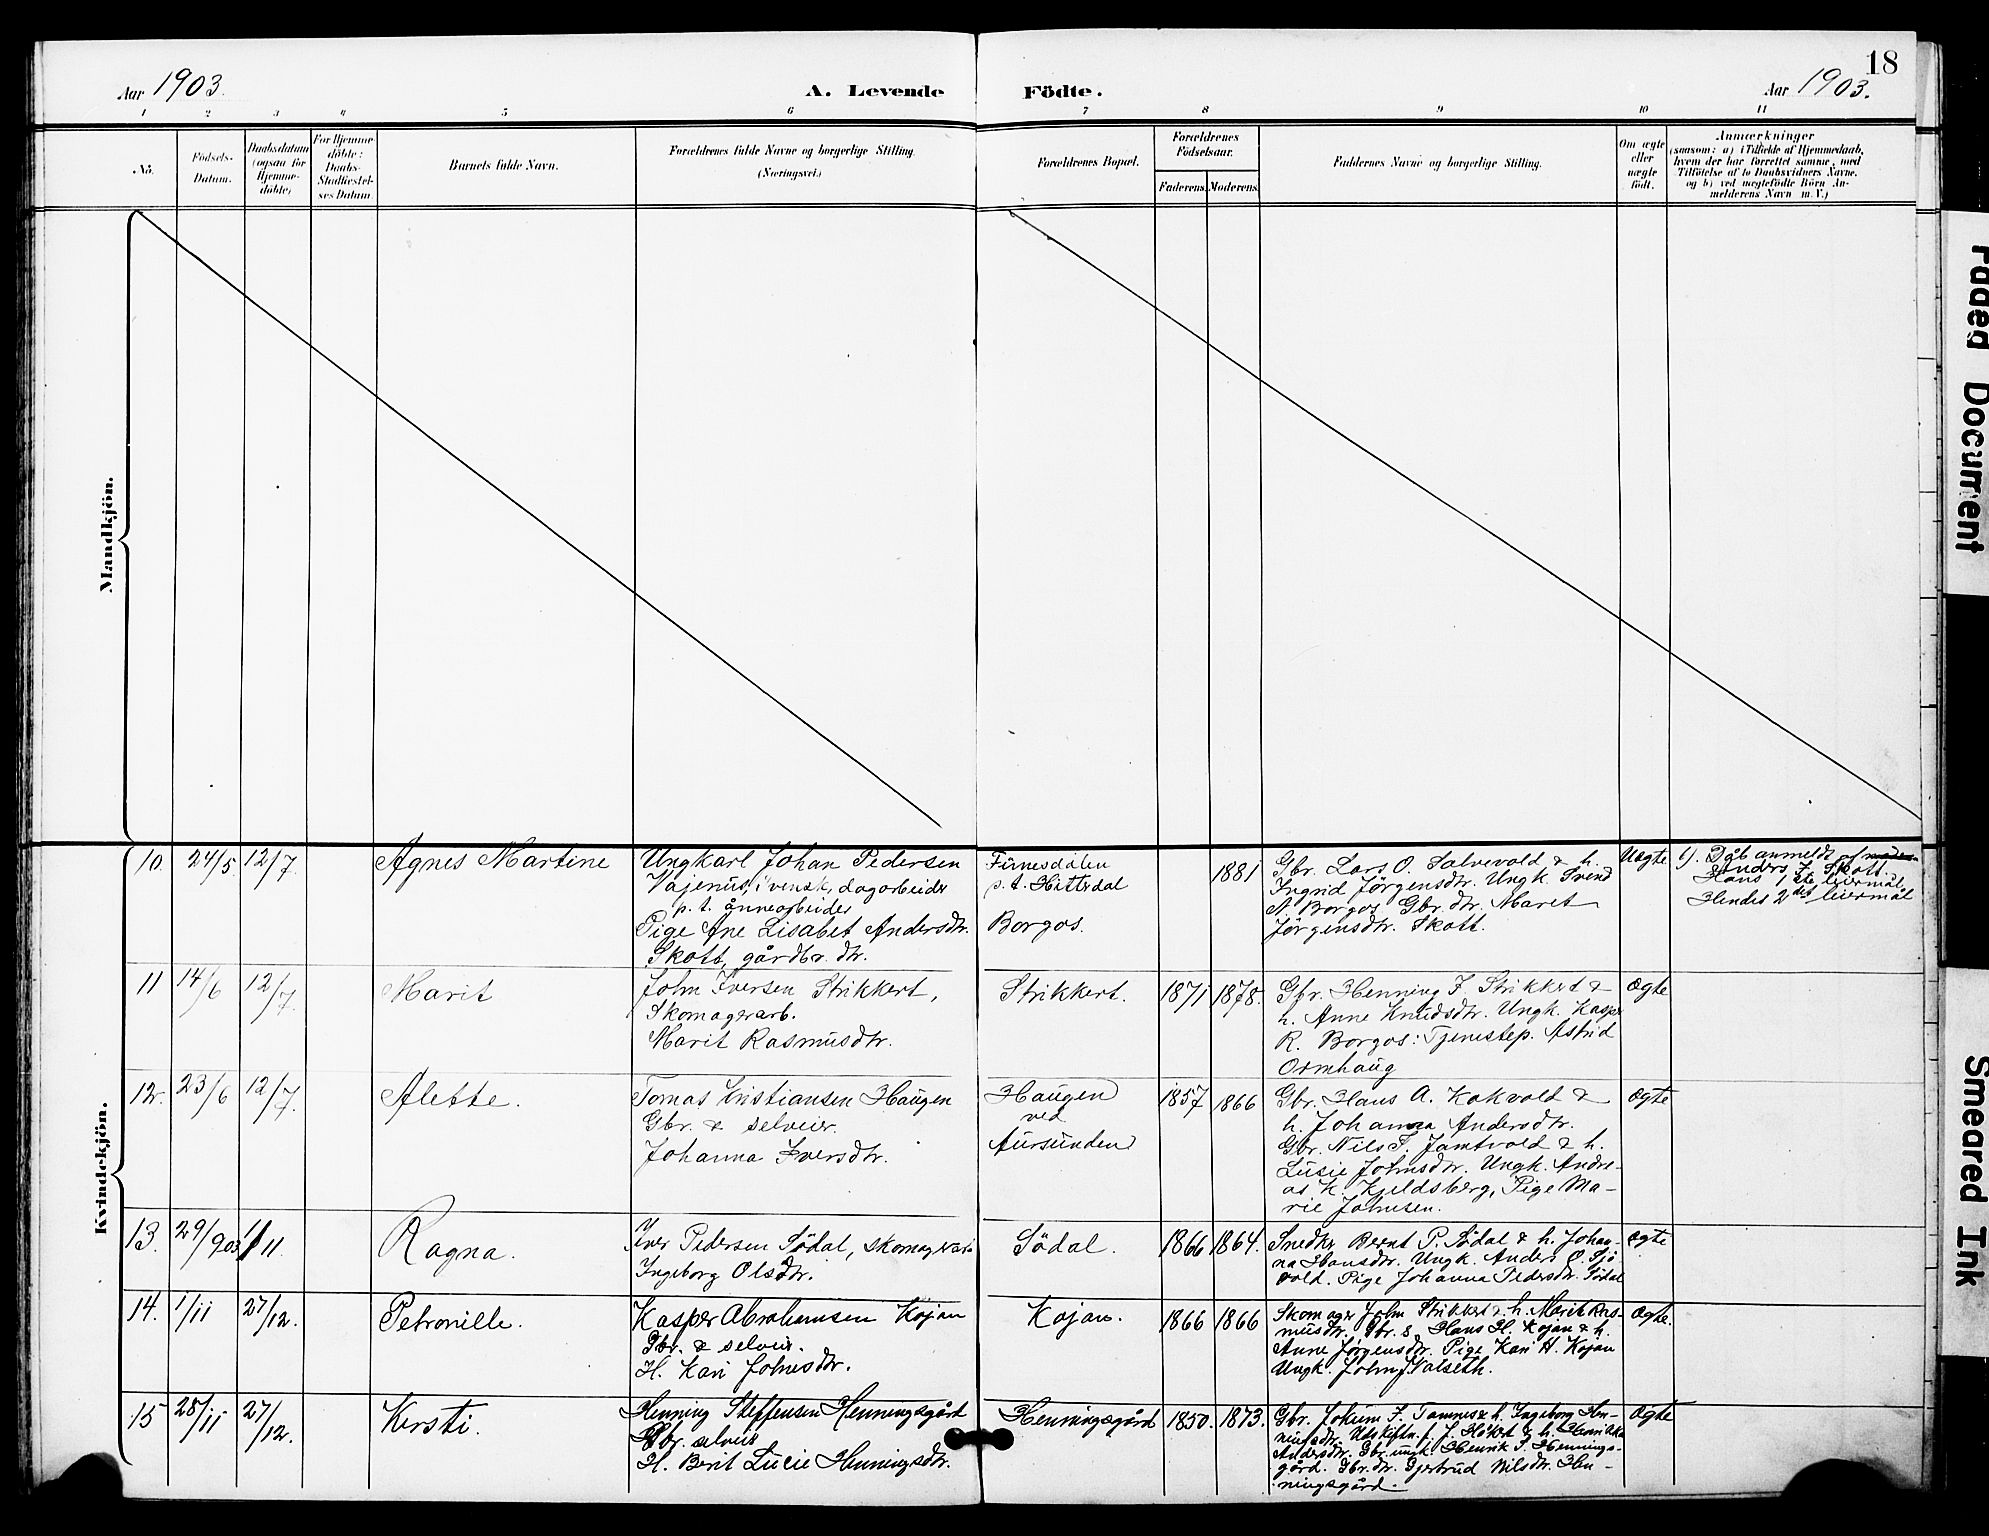 18
Aar 1903.
A. Levende Födte.
Aar 1903.
1 2 3 4 5 6 7 8 9 10 11
No.
Födsels-
Datum.
Daabsdatum
(ogsaa for
Hjemme-
döbte)
For Hjemme-
döbte:
Daabs-
Stadfæstel-
ses Datum.
Barnets fulde Navn.
Forældrenes fulde Navne og borgerlige Stilling.
(Næringsvei.)
Forældrenes Bopæl.
Forældrenes
Födselsaar.
Faderens. Moderens.
Faddernes Navne og borgerlige Stilling.
Om ægte
eller
uægte
födt.
Anmærkninger
(saasom: a) i Tilfælde af Hjemmedaab,
hvem der har forrettet samme, med
Tilföielse af to Daabsvidners Navne,
og b) ved uægtefödte Börn An-
melderens Navn m. V.)
Mandkjön.
Kvindekjön.
10. 24/5 12/7. Agnes Martine
Ungkarl Johan Pedersen
Vajenius, svensk, dagarbeider
p. t. ånnearbeider
Pige Ane Lisabet Andersdtr.
Skott, gårdbr. dtr.
Finnesdalen
p. t. Hittersdal
Borgos.
1881
Gbr. Lars O. Salvevold & h.
Ingrid Jörgensdtr. Ungk. Svend
A. Borgos Gbr. dtr. Maret
Jörgensdtr. Skott.
Uægte
1). Dåb anmeldt af
Anders J. Skott.
Hans 1ste leiermål,
Hendes 2det leiermål
11 14/6 12/7. Marit
John Iversen Strikkert,
Skomagerarb.
Marit Rasmusdtr.
Strikkert.
1871 1878.
Gbr. Henning J. Strikkert &
h. Anne Knudsdtr. Ungk. Kasper
R. Borgos: Tjenestep. Astrid
Ormhaug
Ægte
12. 23/6 12/7. Alette.
Tomas Kristiansen Haugen
Gbr. & selveier.
Johanna Iversdtr.
Haugen
ved
Aursunden
1857 1866
Gbr. Hans A. Kokvold &
h. Johanna Andersdtr.
Gbr. Nils T. Jamtvold & h.
Lusie Johnsdtr. Ungk. Andre-
as K. Kjeldsberg, Pige Ma-
rie Johnsen.
Ægte
13. 29/9 03 1/11. Ragna.
Iver Pedersen Södal, skomagerarb.
Ingeborg Olsdtr.
Södal.
1866 1864.
Snedkr Bernt P. Södal & h. Johan-
na Hansdtr. Ungk. Anders O. Sjö
vold. Pige Johanna Pedersdtr. Södal
Ægte
14. 1/11 27/12. Petronille.
Kasper Abrahamsen Kojan
Gbr. & selveier.
H. Kari Johnsdtr.
Kojan.
1866 1866
Skomager John Strikkert & h. Marit Ras-
musdtr. Gbr. s. Hans H. Kojan & h.
Anne Jörgensdtr. Pige Kari H. Kojan
Ungk. John J Valseth.
Ægte.
15 28/11 27/12. Kersti.
Henning Steffensen Henningsgård
Gbr. selveier
H. Berit Lucie Henningsdtr.
Henningsgård
1850. 1873.
Gbr. Johum J. Tamnes & h. Ingeborg Hen-
ningsdtr. Udskiftn. f. J. Hökert & h. Henrikke
Andersdtr. Gbr. ungk. Henrik S. Hennings-
gård. Gbr. dtr. Gjertrud Nilsdtr. Hen-
ningsgård.
Ægte
Faded Document
Smeared Ink